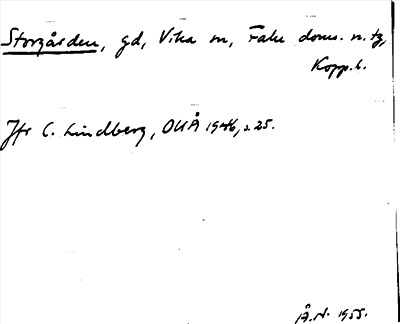 Storgården, gd, Vika sn, Falu doms. n. tg,
Kopp. l.
Jfr C. Lindberg, OUÅ 1946, s. 25.
Å.N. 1955.